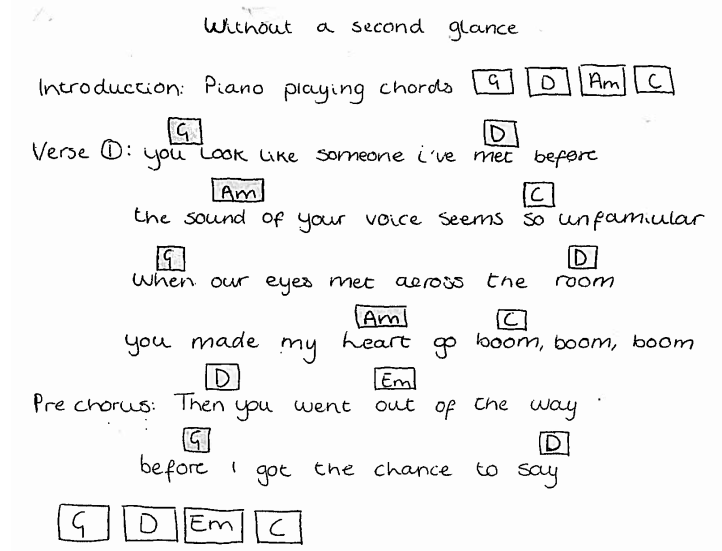 Without a second glance
Introduction: Piano playing chords G D Am C
G D
Verse ①: you look like someone i've met before
Am C
the sound of your voice seems so unfamiliar
G D
When our eyes met across the room
Am C
you made my heart go boom, boom, boom
D Em
Pre chorus: Then you went out of the way
G D
before I got the chance to say
G D Em C